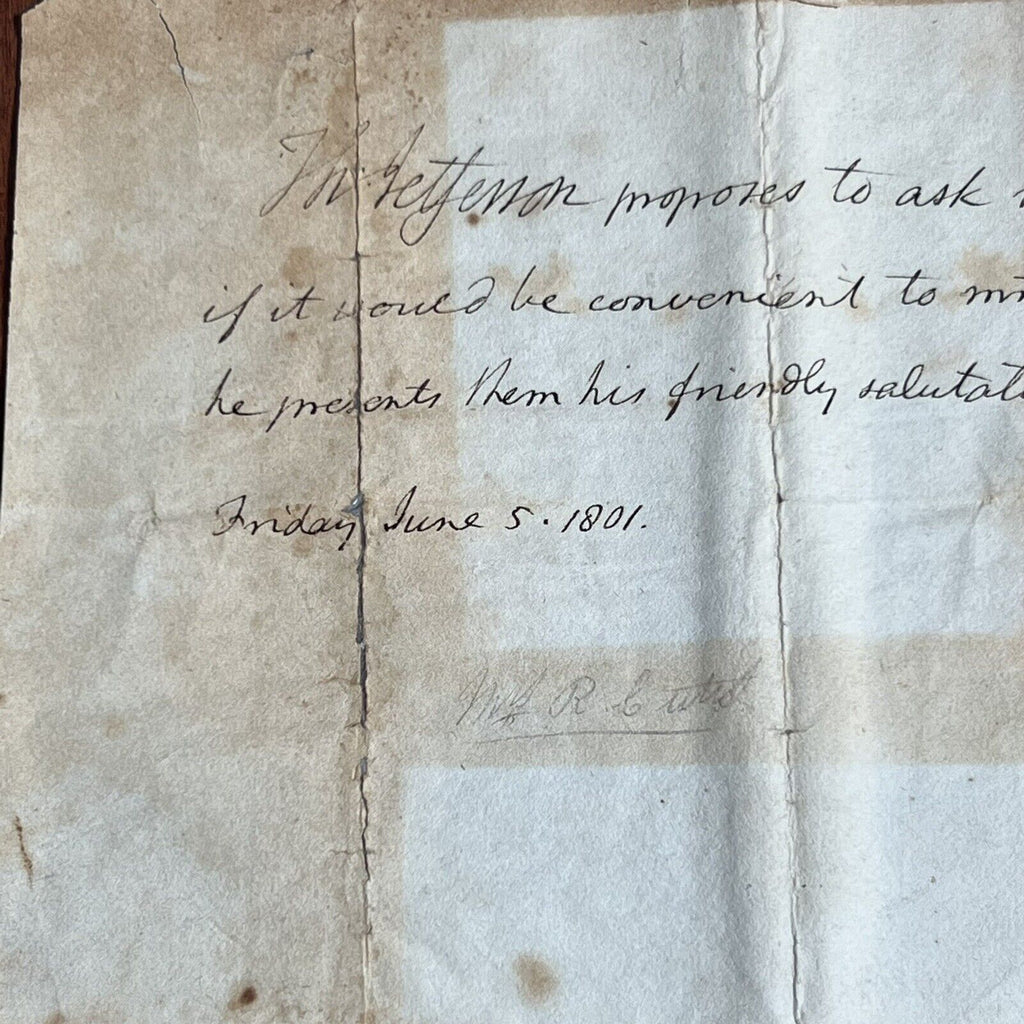 Th: Jefferson proposes to ask
if it would be convenient to
he presents them his friendly
Friday June 5. 1801.
R